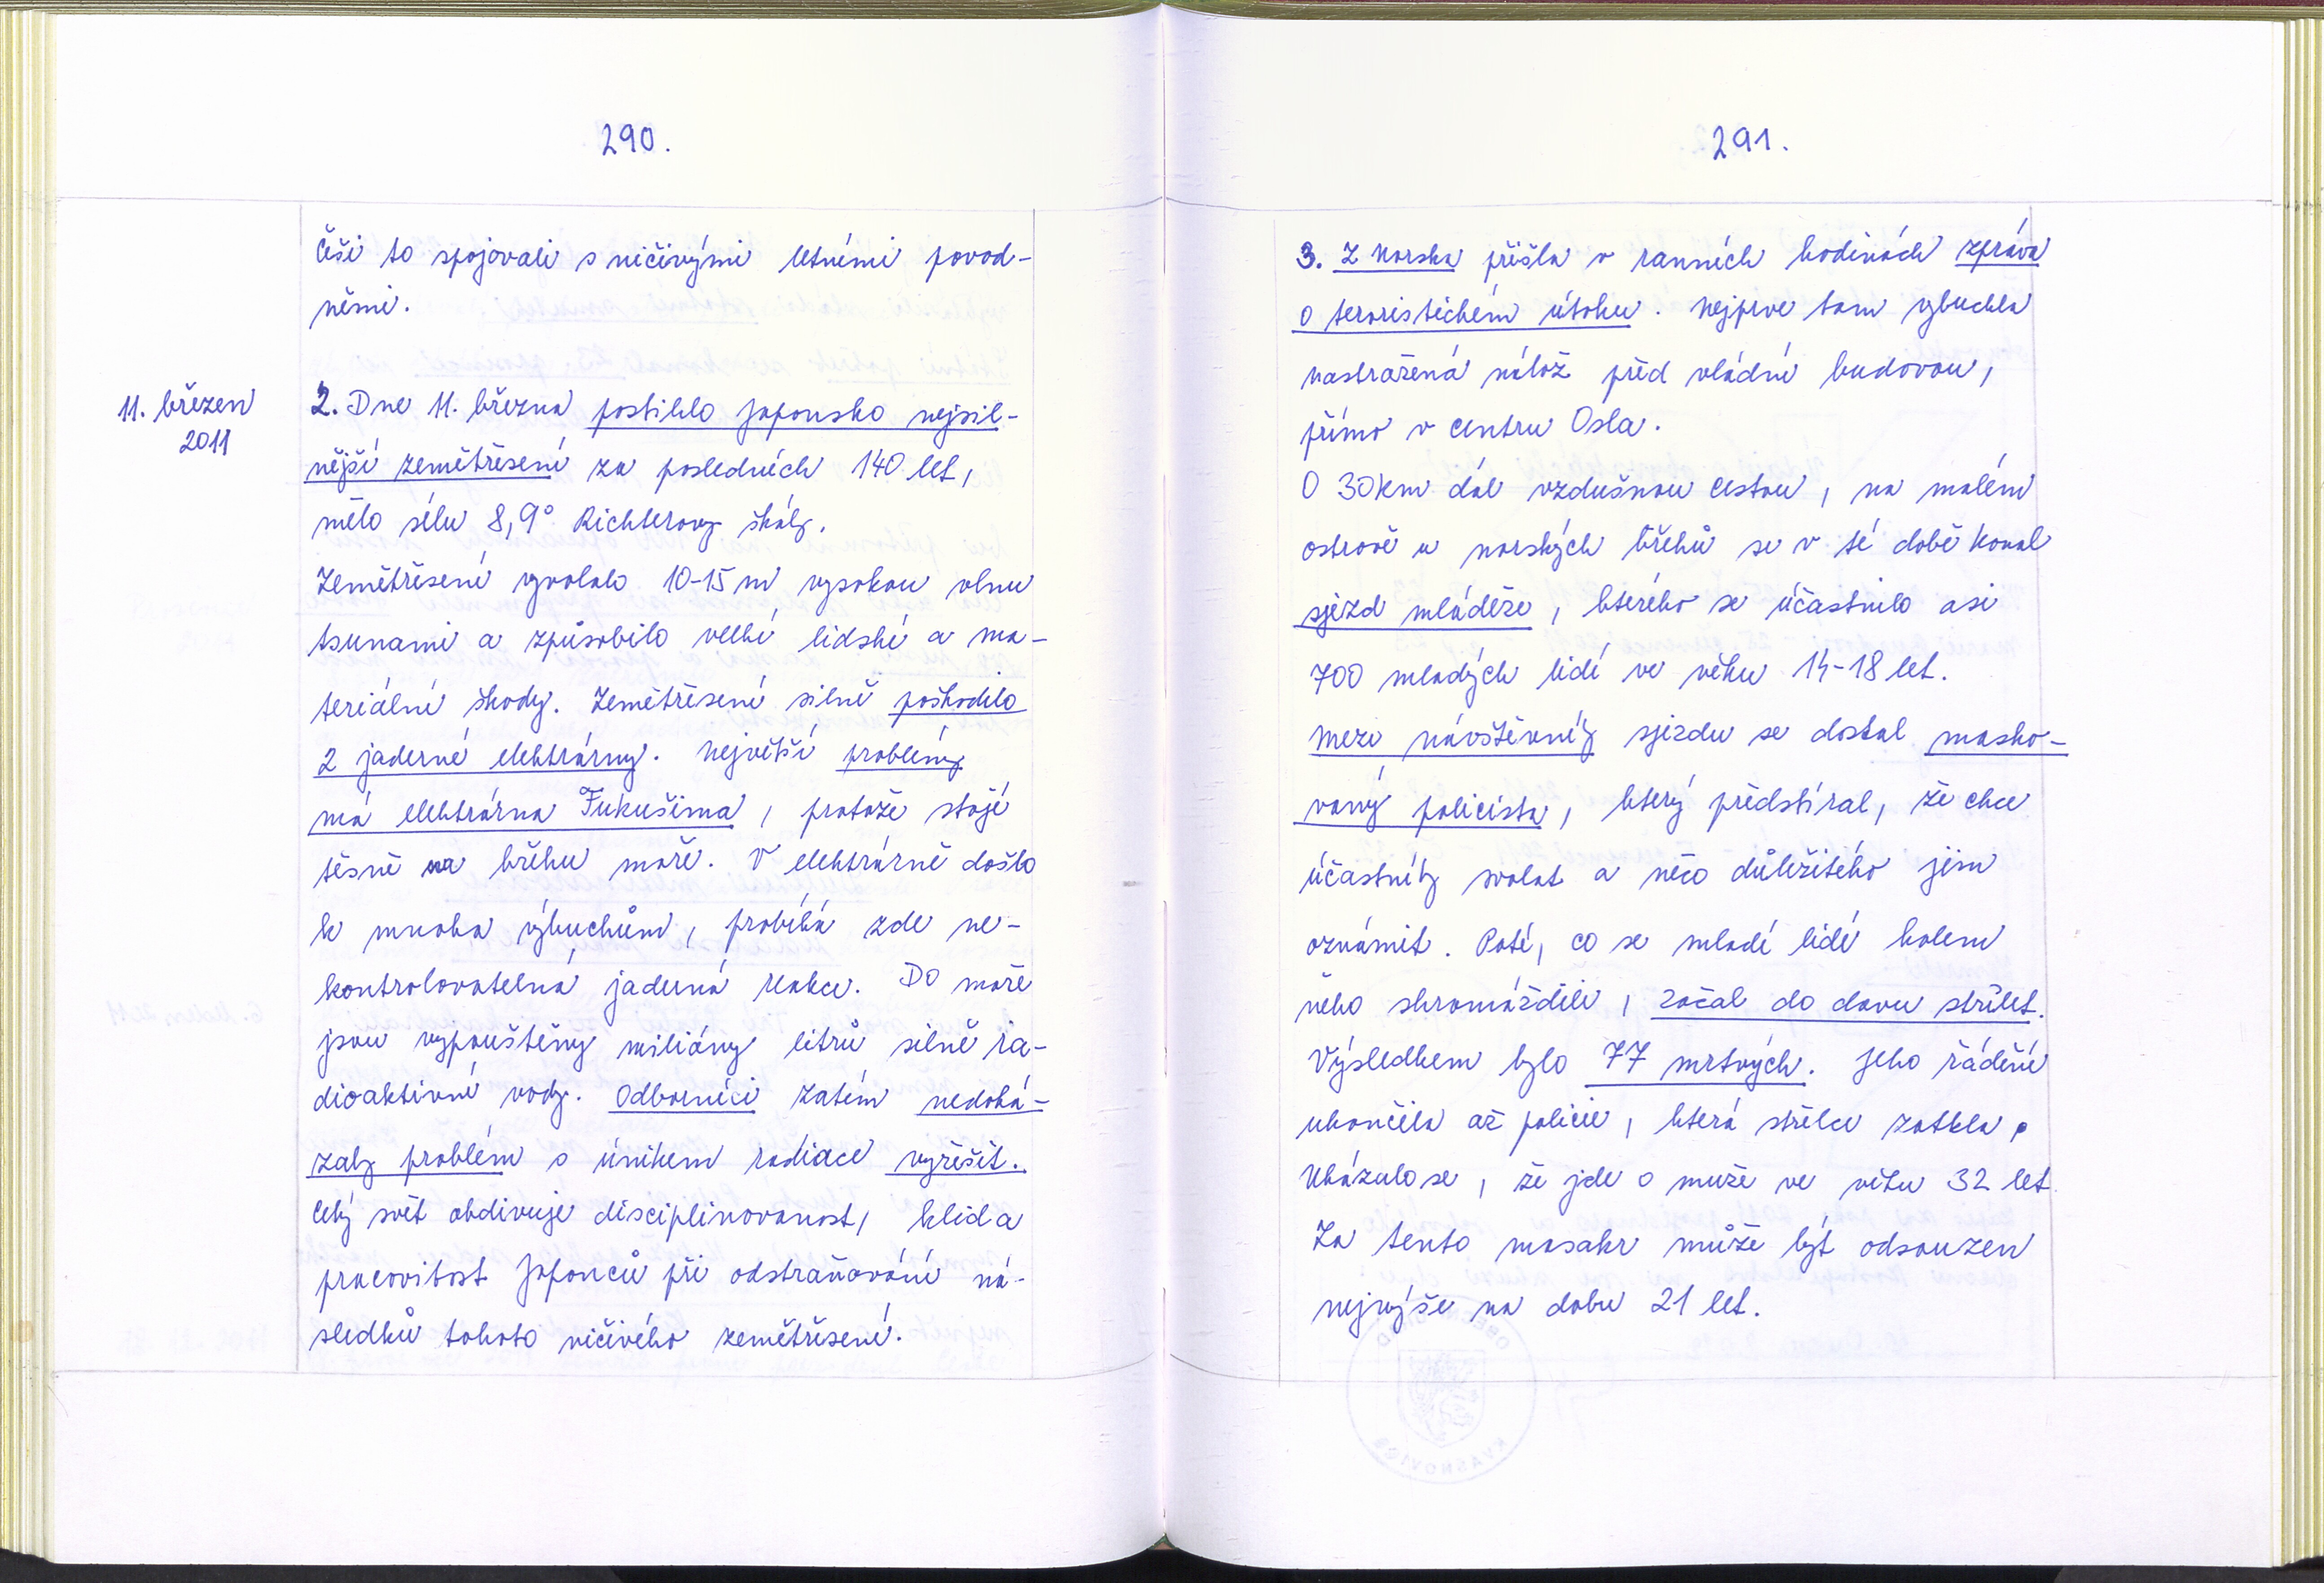 290.
Češi to spojovali s ničivými letními povod-
němi.
11. březen
2011
2. Dne 11. března postihlo Japonsko nejsil-
nější zemětřesení za posledních 140 let,
mělo sílu 8,9° Richterovy škály.
Zemětřesení vyvolalo 10-15 m vysokou vlnu
tsunami a způsobilo velké lidské a ma-
teriální škody. Zemětřesení silně poškodilo
2 jaderné elektrárny. Největší problémy
má elektrárna Fukušima, protože stojí
těsně na břehu moře. V elektrárně došlo
k mnoha výbuchům, probíhá zde ne-
kontrolovatelná jaderná reakce. Do moře
jsou vypouštěny milióny litrů silně ra-
dioaktivní vody. Odborníci zatím nedoká-
zaly problém s únikem radiace vyřešit.
Celý svět obdivuje disciplinovanost, klid a
pracovitost Japonců při odstraňování ná-
sledků tohoto ničivého zemětřesení.
291.
3. Z Norska přišla v ranních hodinách zpráva
o teroristickém útoku. Nejprve tam vybuchla
nastražená nálož před vládní budovou,
přímo v centru Osla.
O 30km dál vzdušnou cestou, na malém
ostrově u norských břehů se v té době konal
sjezd mládeže, kterého se účastnilo asi
700 mladých lidí ve věku 14-18 let.
Mezi návštěvníky sjezdu se dostal masko-
vaný policista, který předstíral, že chce
účastníky svolat a něco důležitého jim
oznámit. Poté, co se mladí lidé kolem
něho shromáždili, začal do davu střílet.
Výsledkem bylo 77 mrtvých. Jeho řádění
ukončila až policie, která střelce zatkla.
Ukázalo se, že jde o muže ve věku 32 let.
Za tento masakr může být odsouzen
nejvýše na dobu 21 let.